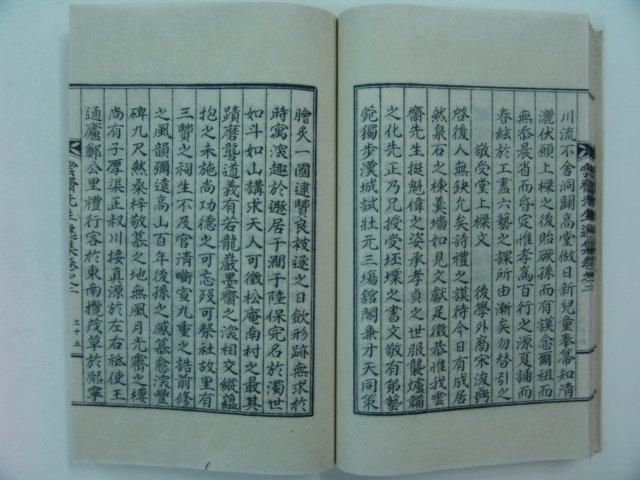 川流不舍洞闢高堂做日新兒童奉箒知清
灑伏願上樑之後貽厥孫而有謨念爾祖而
無忝晨省而昏定惟孝為百行之源夏誦而
春絃於工書六藝之課所由漸矣勿替引之
啓後人無缺允矣詩禮之謨待今日有成居
然泉石之棟美墻如見文獻足徵恭惟我雲
齋先生挺魁偉之姿承孝貞之世服襲爐韛
之化先正乃兄授受坯墣之書文敬有弟藝
苑獨步漢城試壯元三場舘閣兼才天同策
敬受堂上樑文
後學外裔宋浚
膾炙一國逮賢良被逐之日歛形跡無求於
時寓深趣於遯居于澗于陸保完名於濁世
如斗如山講求天人可徵松庵南村之最其
蹟磨礱道義有若龍巖墨齋之深相交縱蘊
抱之未施尚功德之可忘歿可祭社故里有
三賢之祠生不及官清啣宣九重之誥前修
之風韻彌遠高山百年後孫之感慕愈深豐
碑九尺然桑梓敬慕之地無風月光齋之棲
尚有子厚渠正叔川接真源於左右祗使王
通廬鄭公里禮行客於東南攬茂草於熙寧
雲齋先生逸集卷之二
三十五